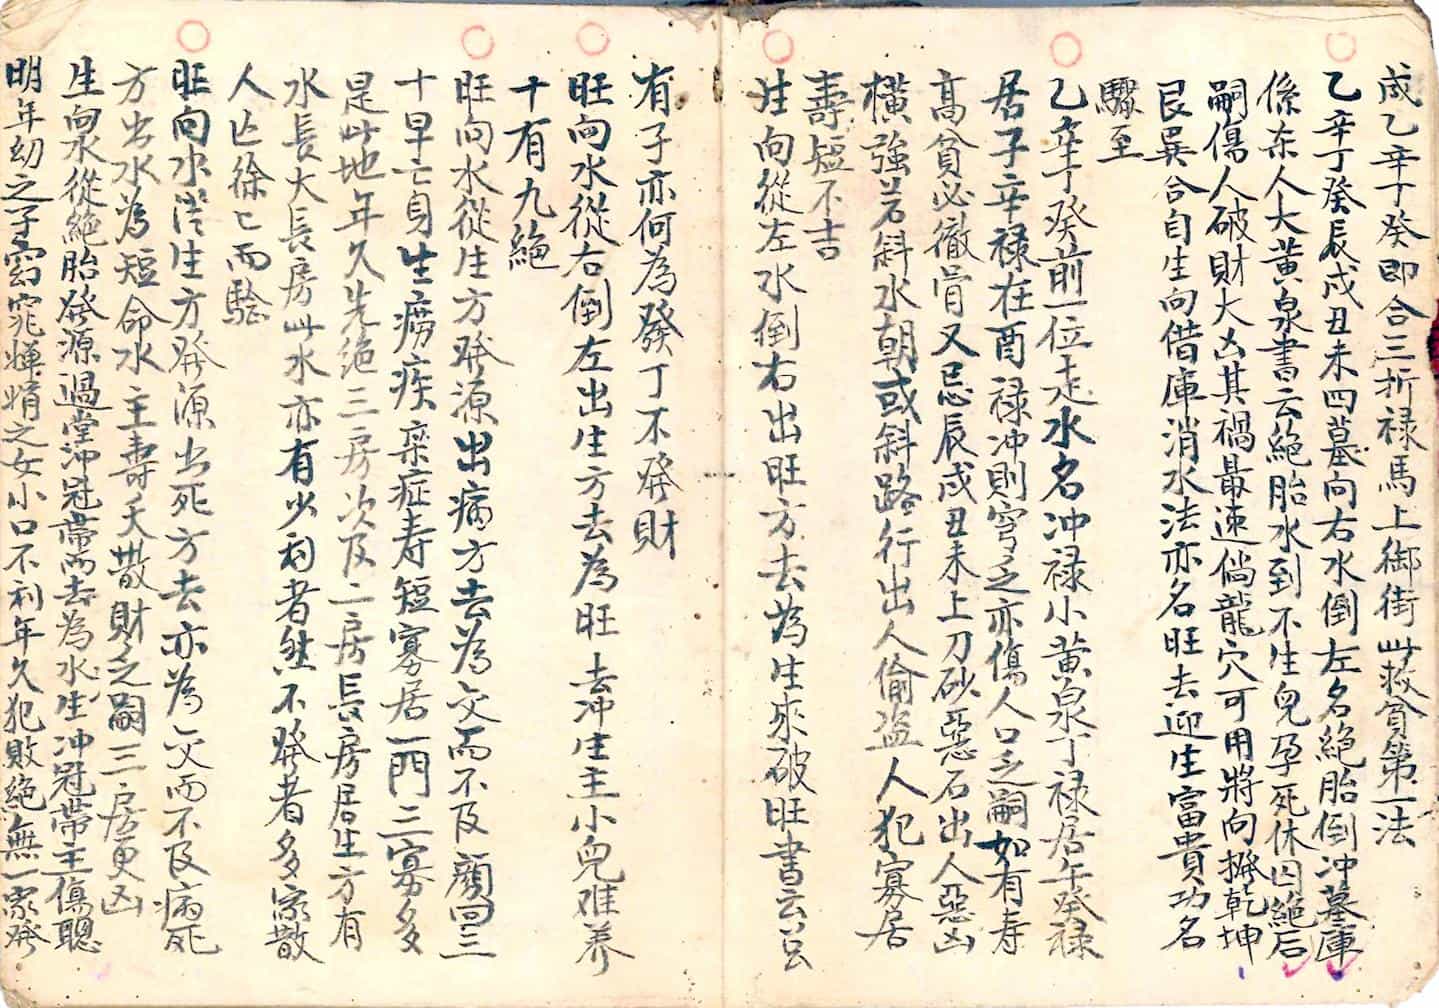 成乙辛丁癸即合三折禄馬上御街此救貧第一法
乙辛丁癸辰戌丑未四墓向右水倒左名絕胎倒冲墓庫
係东人大黃泉書云絕胎水到不生兒孕死休囚絕后
嗣傷人破財大凶其禍最速倘龍穴可用將向撥乾坤
艮巽合自生向借庫消水法亦名旺去迎生富貴功名
驟至
乙辛丁癸前一位走水名冲禄小黃泉丁禄居午癸禄
居子辛禄在酉禄冲則窮乏亦傷人口乏嗣如有寿
高貧必徹骨又忌辰戌丑未上刀砂惡石出人惡凶
橫強若斜水朝或斜路行出人偷盗人犯寡居
壽短不吉
生向從左水倒右出旺方去為生來破旺書云公
有子亦何為發丁不發財
旺向水從右倒左出生方去為旺去冲生主小兒难养
十有九絕
旺向水從生方發源出病方去為交而不及顏回三
十早亡身生癆疾杂症寿短寡居一門三寡多
是此地年久先絕三房次及二房長房居生方有
水長大長房此水亦有少利者然不發者多家散
人亡徐亡而驗
旺向水從生方發源出死方去亦為交而不及病死
方出水為短命水主壽夭散財乏嗣三房更凶
生向水從絕胎發源過堂冲冠帶而去為水生冲冠帶主傷聰
明年幼之子窈窕嬋娟之女小口不利年久犯敗絕無一家發